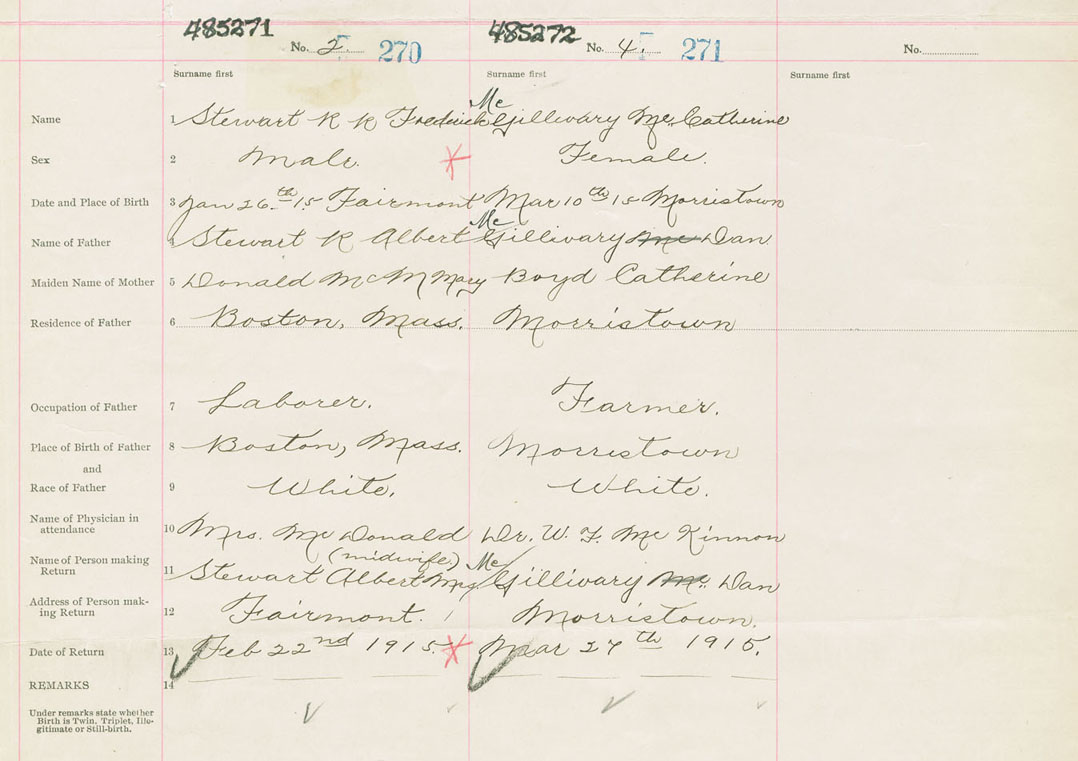 485271 485272
No. 2. 270 No. 4. 271 No.
Surname first Surname first Surname first
Name 1 Stewart R K Frederick McGillivary Mc. Catherine
Sex 2 Male. Female.
Date and Place of Birth 3 Jan 26th 15 Fairmont Mar 10th 15 Morristown
Name of Father 4 Stewart R Albert McGillivary Mc Dan
Maiden Name of Mother 5 Donald Mc M Mary Boyd Catherine
Residence of Father 6 Boston, Mass. Morristown
Occupation of Father 7 Laborer. Farmer.
Place of Birth of Father 8 Boston, Mass. Morristown
and
Race of Father 9 White. White.
Name of Physician in
attendance 10 Mrs. McDonald Dr. W. F. McKinnon
(midwife)
Name of Person making
Return 11 Stewart Albert Mrs McGillivary Mc. Dan
Address of Person mak-
ing Return 12 Fairmont. Morristown.
Date of Return 13 Feb 22nd 1915. Mar 27th 1915.
REMARKS 14
Under remarks state whether
Birth is Twin, Triplet, Ille-
gitimate or Still-birth.